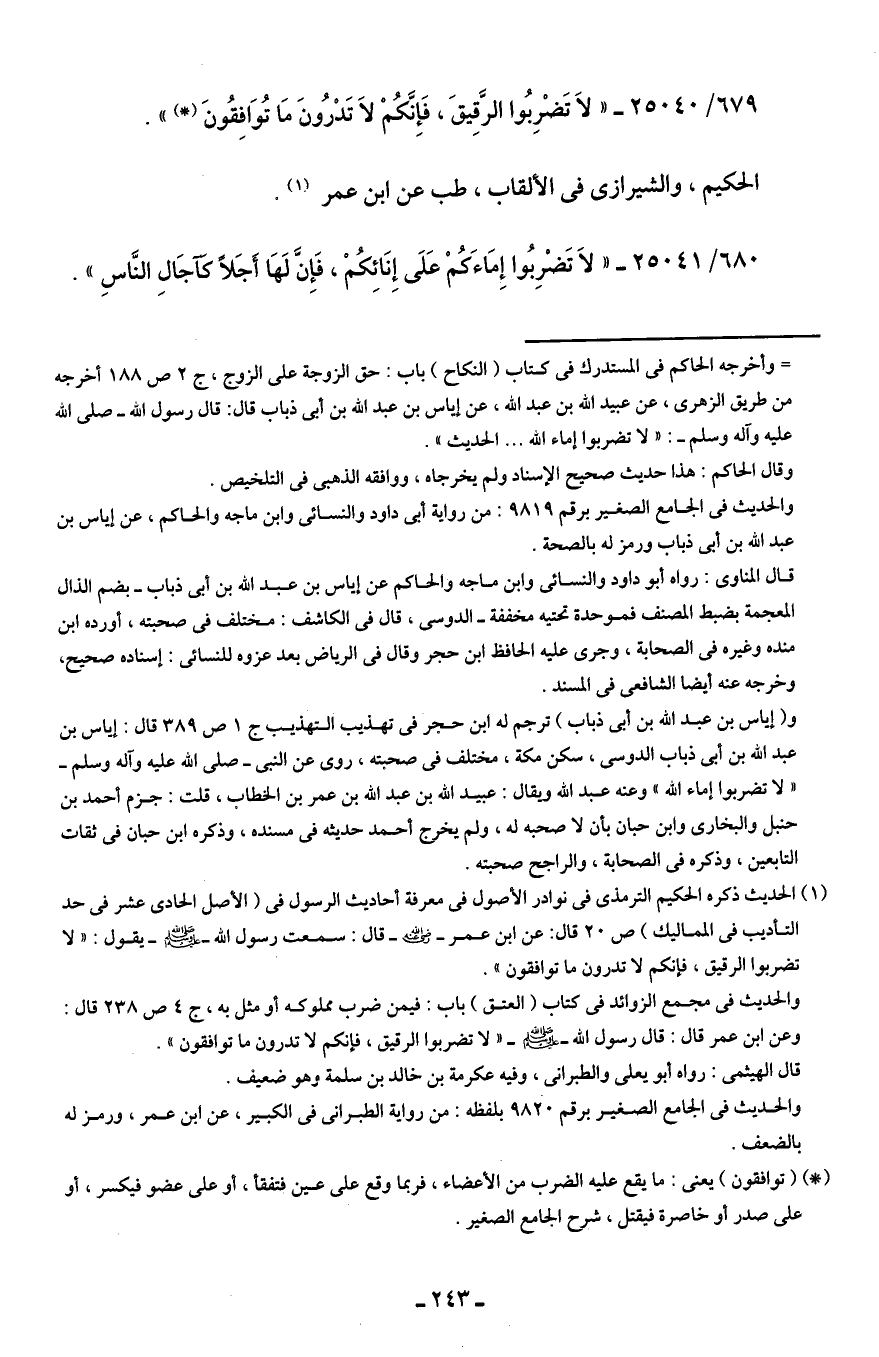 ٦٧٩/ ٢٥٠٤٠ ـ « لاَ تَضْرِبُوا الرَّقِيقَ ، فَإِنَّكُمْ لاَ تَدْرُونَ مَا تُوَافِقُونَ (*) » .
الحكيم ، والشيرازى فى الألقاب ، طب عن ابن عمر (١) .
٦٨٠/ ٢٥٠٤١ ـ « لاَ تَضْرِبُوا إِمَاءَكُمْ عَلَى إِنَائِكُمْ ، فَإِنَّ لَهَا أَجَلاً كَآجَالِ النَّاسِ » .
= وأخرجه الحاكم فى المستدرك فى كتاب ( النكاح ) باب : حق الزوجة على الزوج ، ج ٢ ص ١٨٨ أخرجه
من طريق الزهرى ، عن عبيد الله بن عبد الله ، عن إياس بن عبد الله بن أبى ذباب قال: قال رسول الله ـ صلى الله
عليه وآله وسلم ـ : « لا تضربوا إماء الله ... الحديث » .
وقال الحاكم : هذا حديث صحيح الإسناد ولم يخرجاه ، ووافقه الذهبى فى التلخيص .
والحديث فى الجامع الصغير برقم ٩٨١٩ : من رواية أبى داود والنسائى وابن ماجه والحاكم ، عن إياس بن
عبد الله بن أبى ذباب ورمز له بالصحة .
قال المناوى : رواه أبو داود والنسائى وابن ماجه والحاكم عن إياس بن عبد الله بن أبى ذباب ـ بضم الذال
المعجمة بضبط المصنف فموحدة تحتيه مخففة ـ الدوسى ، قال فى الكاشف : مختلف فى صحبته ، أورده ابن
منده وغيره فى الصحابة ، وجرى عليه الحافظ ابن حجر وقال فى الرياض بعد عزوه للنسائى : إسناده صحيح،
وخرجه عنه أيضا الشافعى فى المسند .
و( إياس بن عبد الله بن أبى ذباب ) ترجم له ابن حجر فى تهذيب التهذيب ج ١ ص ٣٨٩ قال : إياس بن
عبد الله بن أبى ذباب الدوسى ، سكن مكة ، مختلف فى صحبته ، روى عن النبى ـ صلى الله عليه وآله وسلم ـ
« لا تضربوا إماء الله » وعنه عبد الله ويقال : عبيد الله بن عبد الله بن عمر بن الخطاب ، قلت : جزم أحمد بن
حنبل والبخارى وابن حبان بأن لا صحبه له ، ولم يخرج أحمد حديثه فى مسنده ، وذكره ابن حبان فى ثقات
التابعين ، وذكره فى الصحابة ، والراجح صحبته .
(١) الحديث ذكره الحكيم الترمذى فى نوادر الأصول فى معرفة أحاديث الرسول فى ( الأصل الحادى عشر فى حد
التأديب فى المماليك ) ص ٢٠ قال: عن ابن عمر ـ رضي الله عنه ـ قال : سمعت رسول الله ـ ﷺ ـ يقول : « لا
تضربوا الرقيق ، فإنكم لا تدرون ما توافقون » .
والحديث فى مجمع الزوائد فى كتاب ( العتق ) باب : فيمن ضرب مملوكه أو مثل به ، ج ٤ ص ٢٣٨ قال :
وعن ابن عمر قال : قال رسول الله ـ ﷺ ـ « لا تضربوا الرقيق ، فإنكم لا تدرون ما توافقون » .
قال الهيثمى : رواه أبو يعلى والطبرانى ، وفيه عكرمة بن خالد بن سلمة وهو ضعيف .
والحديث فى الجامع الصغير برقم ٩٨٢٠ بلفظه : من رواية الطبرانى فى الكبير ، عن ابن عمر ، ورمز له
بالضعف .
(*) ( توافقون ) يعنى : ما يقع عليه الضرب من الأعضاء ، فربما وقع على عين فتفقأ ، أو على عضو فيكسر ، أو
على صدر أو خاصرة فيقتل ، شرح الجامع الصغير .
ـ ٢٤٣ ـ